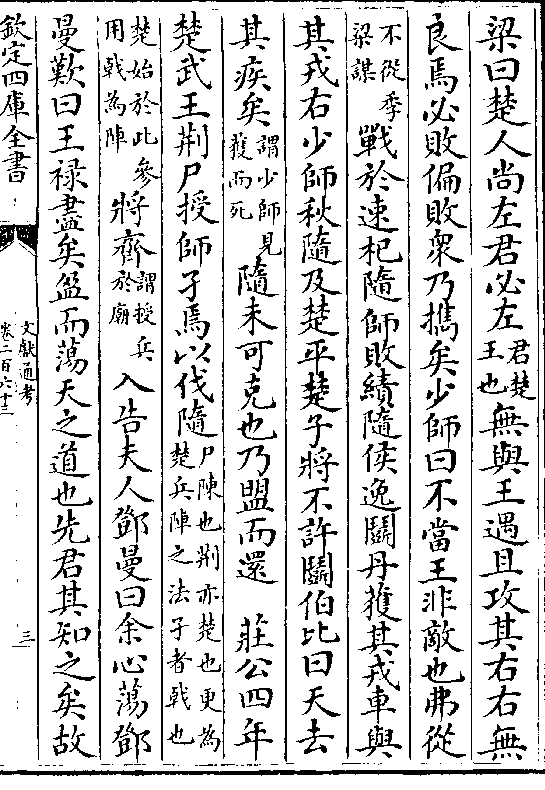 梁曰楚人尚左君必左君楚王也無與王遇且攻其右右無
良焉必敗偏敗衆乃攜矣少師曰不當王非敵也弗從
不從季梁謀戰於速杞隨師敗績隨侯逸鬭丹獲其戎車與
其戎右少師秋隨及楚平楚子將不許鬭伯比曰天去
其疾矣謂少師見獲而死隨未可克也乃盟而還　莊公四年
楚武王荆尸授師孑焉以伐隨尸陳也荆亦楚也更為楚兵陣之法孑者戟也
楚始於此參用戟為陣將齊謂授兵於廟入告夫人鄧曼曰余心蕩鄧
曼歎曰王禄盡矣盈而蕩天之道也先君其知之矣故
欽定四庫全書
文獻通考
卷二百六十三
三